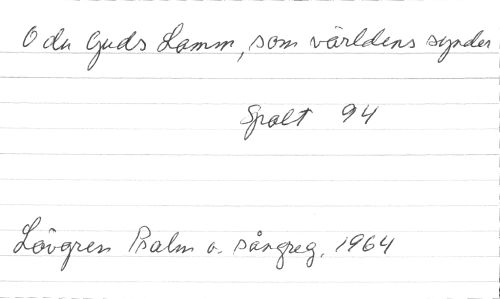 O du Guds Lamm, som världens synder
Spalt 94
Lövgren Psalm o. sångreg. 1964